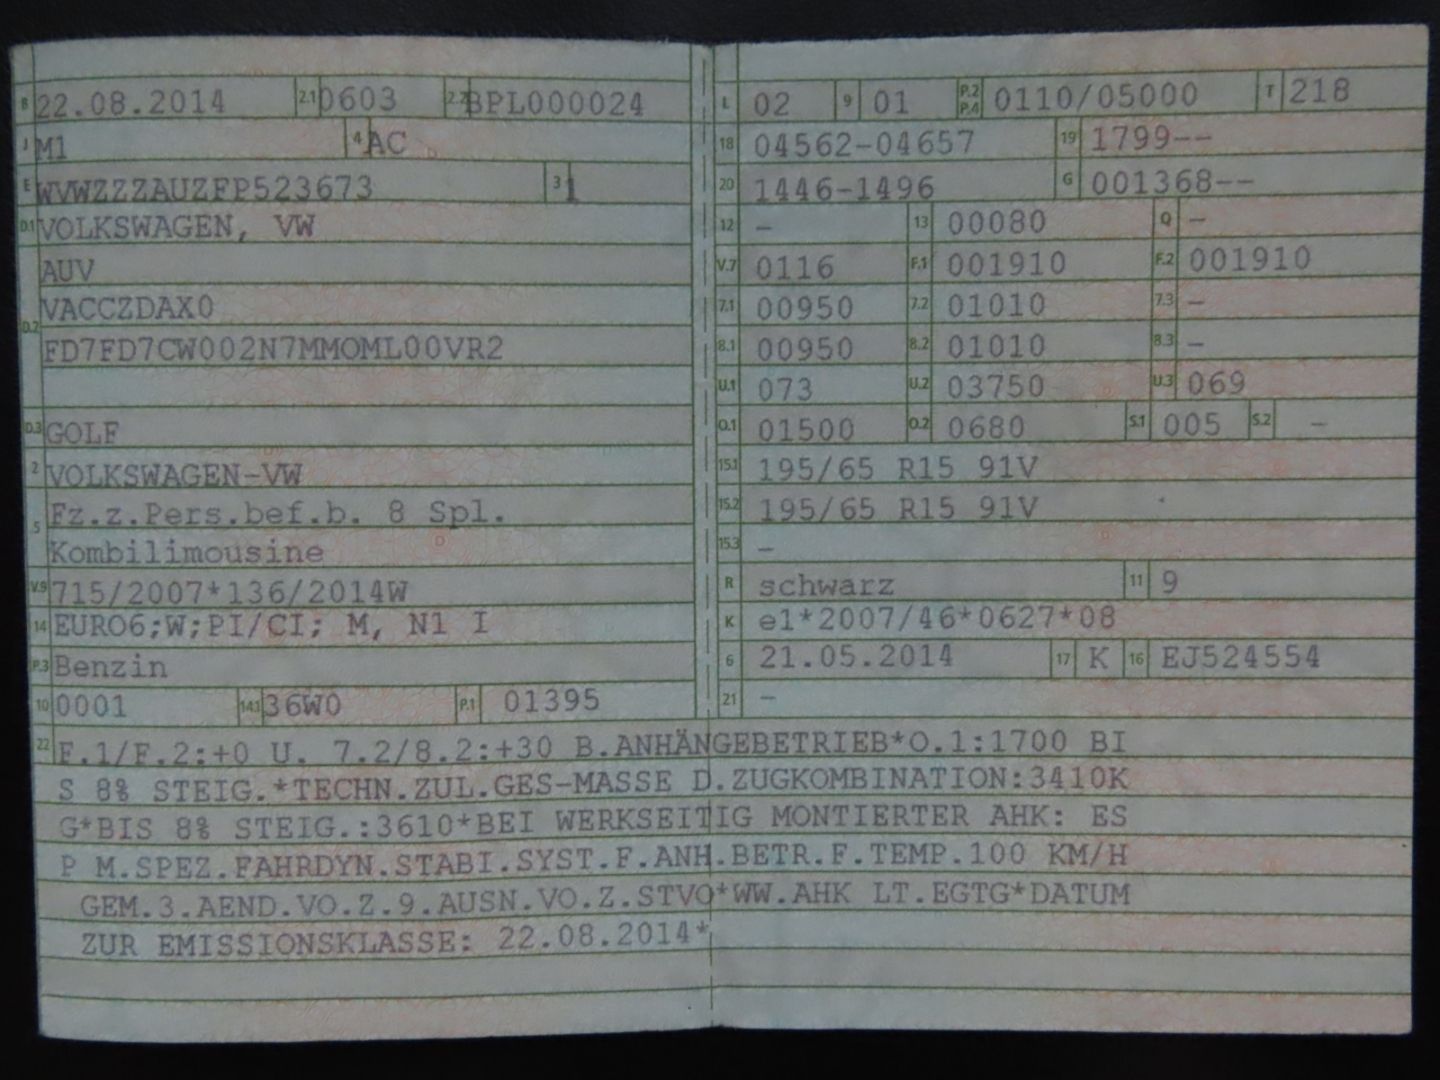 B 22.08.2014 2.1 0603 2.2 BPL000024
J M1 4 AC
E WVWZZZAUZFP523673 3 1
D.1 VOLKSWAGEN, VW
AUV
VACCZDAX0
D.2
FD7FD7CW002N7MMOML00VR2
D.3 GOLF
2 VOLKSWAGEN-VW
5 Fz.z.Pers.bef.b. 8 Spl.
Kombilimousine
V.9 715/2007*136/2014W
14 EURO6;W;PI/CI; M, N1 I
P.3 Benzin
10 0001 14.1 36W0 P.1 01395
L 02 9 01 P.2 P.4 0110/05000 T 218
18 04562-04657 19 1799--
20 1446-1496 G 001368--
12 - 13 00080 Q -
V.7 0116 F.1 001910 F.2 001910
7.1 00950 7.2 01010 7.3 -
8.1 00950 8.2 01010 8.3 -
U.1 073 U.2 03750 U.3 069
O.1 01500 O.2 0680 S.1 005 S.2 -
15.1 195/65 R15 91V
15.2 195/65 R15 91V
15.3 -
R schwarz 11 9
K e1*2007/46*0627*08
6 21.05.2014 17 K 16 EJ524554
21 -
22 F.1/F.2:+0 U. 7.2/8.2:+30 B.ANHÄNGEBETRIEB*O.1:1700 BI
S 8% STEIG.*TECHN.ZUL.GES-MASSE D.ZUGKOMBINATION:3410K
G*BIS 8% STEIG.:3610*BEI WERKSEITIG MONTIERTER AHK: ES
P M.SPEZ.FAHRDYN.STABI.SYST.F.ANH.BETR.F.TEMP.100 KM/H
GEM.3.AEND.VO.Z.9.AUSN.VO.Z.STVO*WW.AHK LT.EGTG*DATUM
ZUR EMISSIONSKLASSE: 22.08.2014*